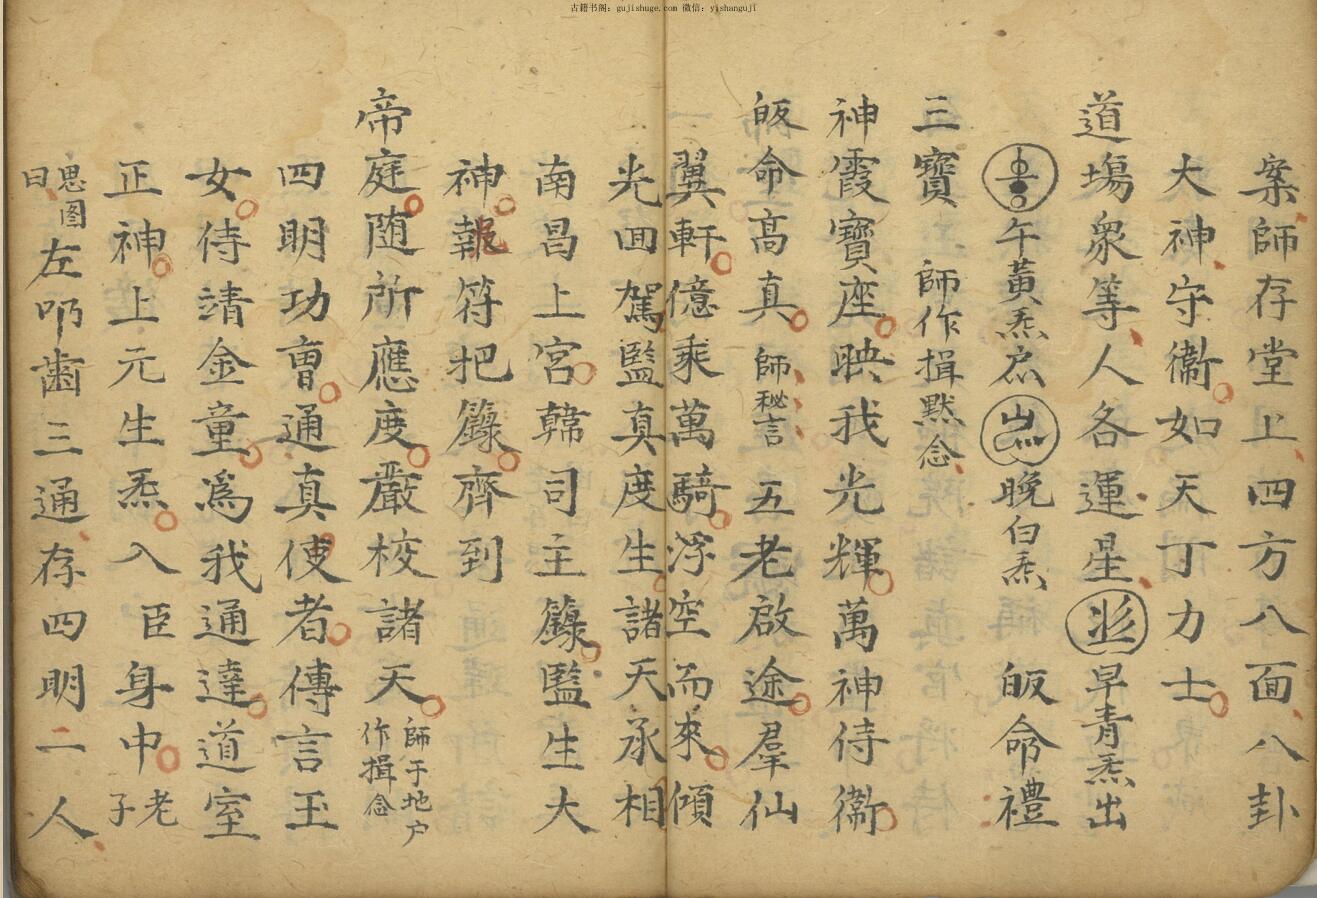 古籍书阁：gujishuge.com 微信：yishanguji
案師存堂上四方八面八卦
大神守衞如天丁力士
道場衆等人各運星早青炁出
午黃炁晚白炁皈命禮
三寶師作揖默念
神霞寶座映我光輝萬神侍衞
皈命高真師秘言五老啟途羣仙
翼軒億乘萬騎浮空而來傾
光回駕監真度生諸天承相
南昌上宮韓司主籙監生大
神報符把籙齊到
帝庭随所應度嚴校諸天師于地户作揖念
四明功曹通真使者傳言玉
女侍靖金童爲我通達道室
正神上元生炁入臣身中老子
思图曰左叩齒三通存四明二人